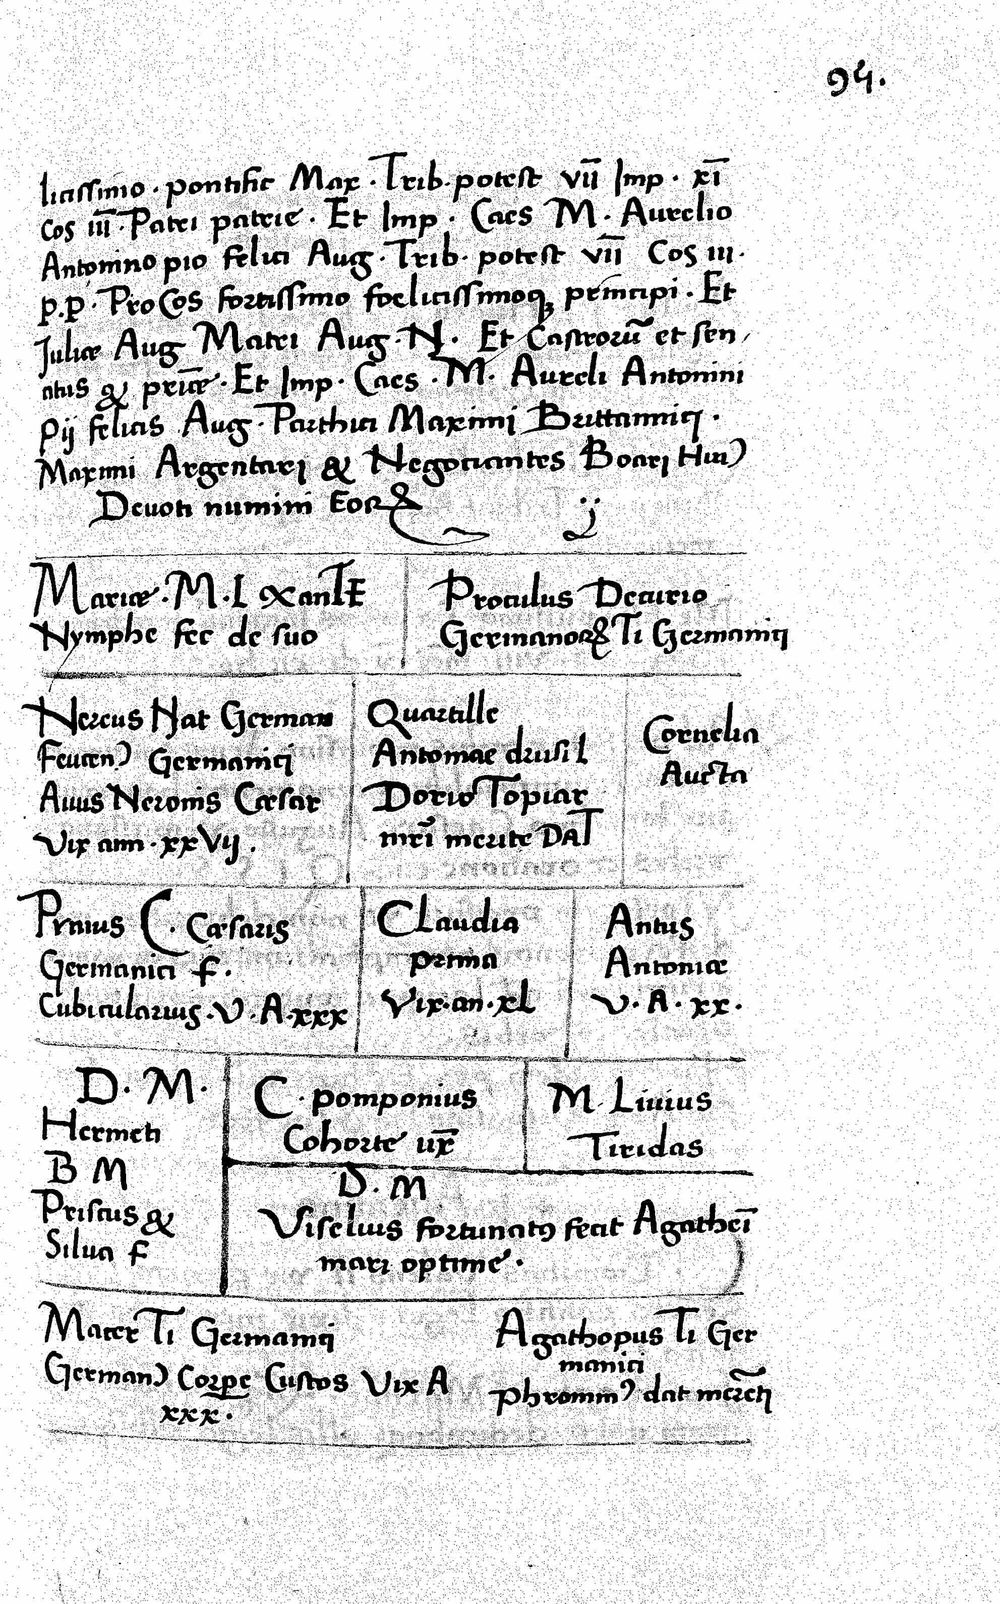 94.
licissimo · pontific Max · Trib · potest vīī Imp · xī
cos īīī · Patri patrie · Et Imp · Caes M · Aurelio
Antonino pio felici Aug · Trib · potest vīī Cos iii ·
p.p · ProCos fortissimo foelicissimoq; principi · Et
Juliæ Aug Matri Aug · N · Et Castrorū et sen,
atus & prīæ · Et Imp · Caes · M · Aureli Antonini
Pij felicis Aug · Parthici Maximi Brittannici ·
Maximi Argentarij & Negociantes Boarij Huiꝰ
Devoti numini Eoꝝ
Mariæ · M · L XanTE
Nymphe fec de suo
Proculus Decurio
Germanoꝝ Ti Germanici
Nereus Nat German
Germanici
Avus Neronis Cæsar
Vix ann · xxVij ·
Quartille
Antoniae drusil
Dorio Topiar
merite DAT
Cornelia
Aucta
C · Cæsaris
Germanici f ·
Cubicularius · V · A · xxx
Claudia
prima
Vix · an · xL
Antus
Antoniæ
V · A · xx ·
D · M ·
Hermeti
B M
Priscus &
Silva f
C · pomponius
Cohorte
M · Livius
Tiridas
D · M
Viselius fortunatꝰ fecit Agatheī
mari optime ·
Macer Ti Germanici
Germanꝰ Corpe Custos Vix A
xxx ·
Agathopus Ti Ger
manici
dat